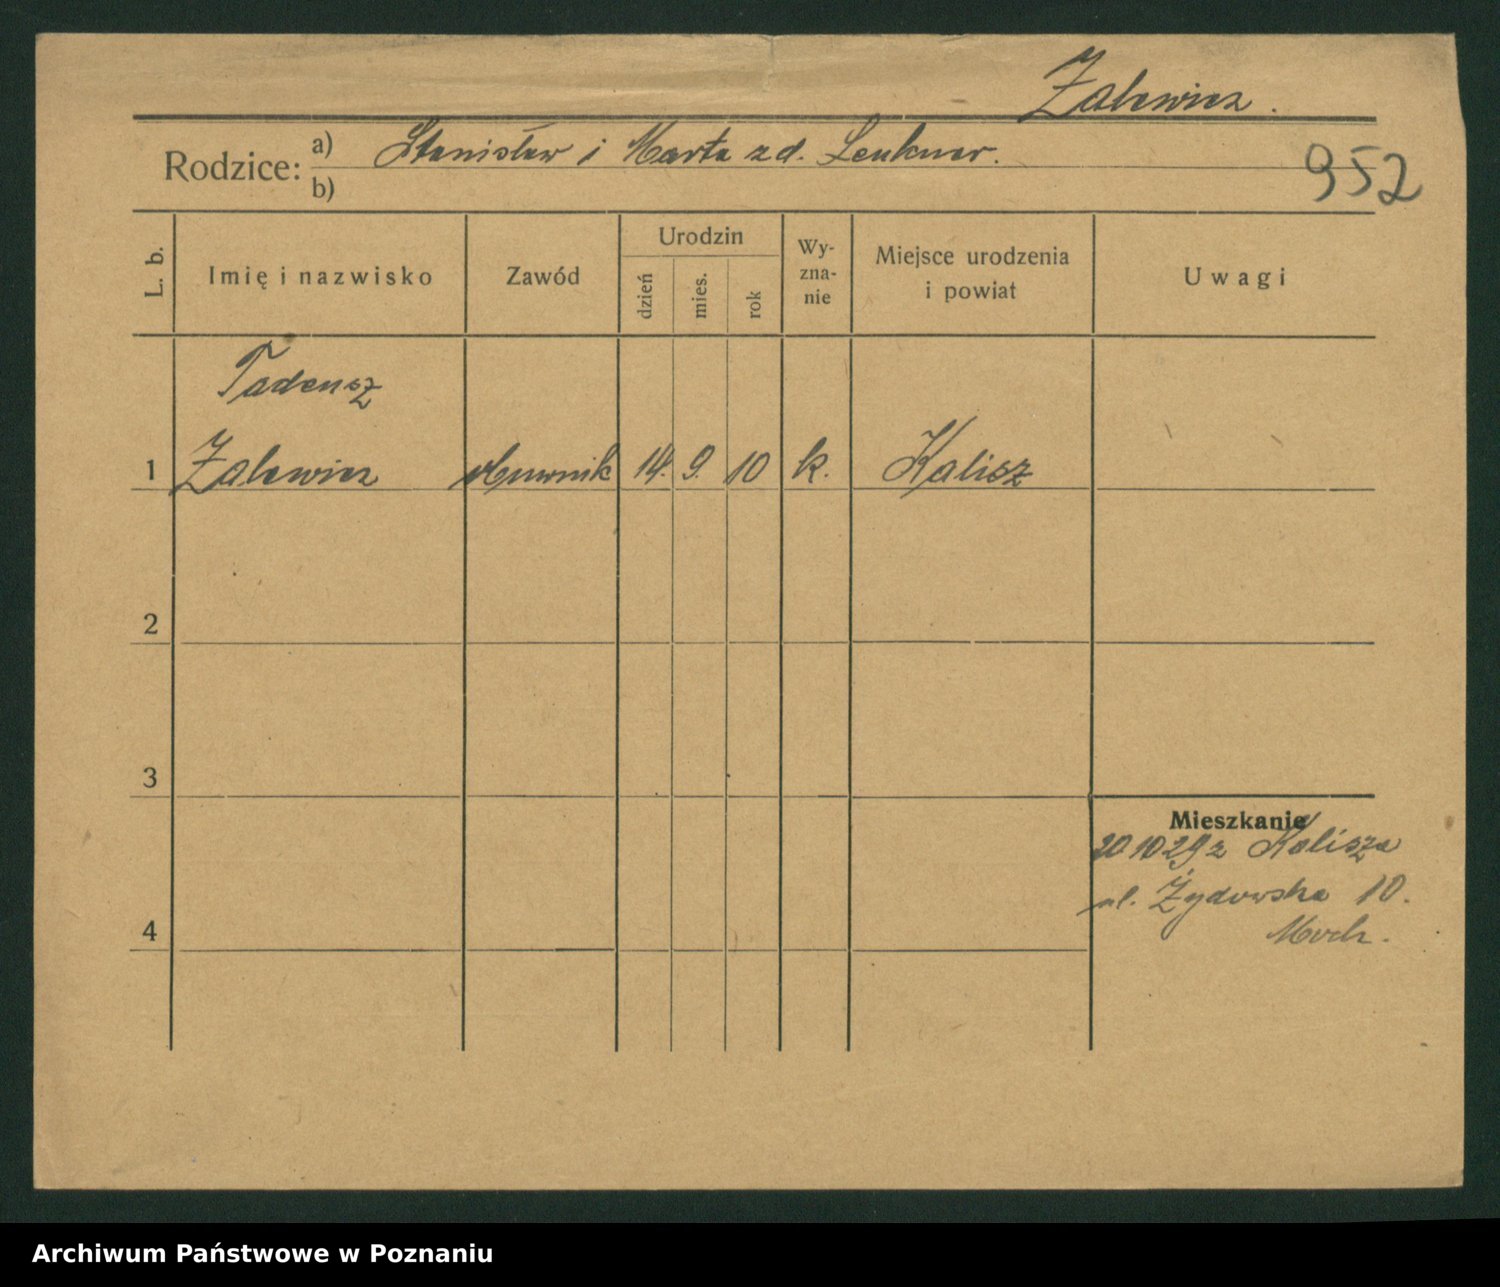 Zalewicz.
Rodzice: a) Stanisław i Marta zd. Leukner.
b)
952
L. b.
Imię i nazwisko
Zawód
Urodzin
dzień
mies.
rok
Wy-
zna-
nie
Miejsce urodzenia
i powiat
Uwagi
Tadeusz
1 Zalewicz 14. 9. 10 k. Kalisz
2
3
4
Mieszkanie
20 10 29 z Kalisza
ul. Żydowska 10.
Archiwum Państwowe w Poznaniu